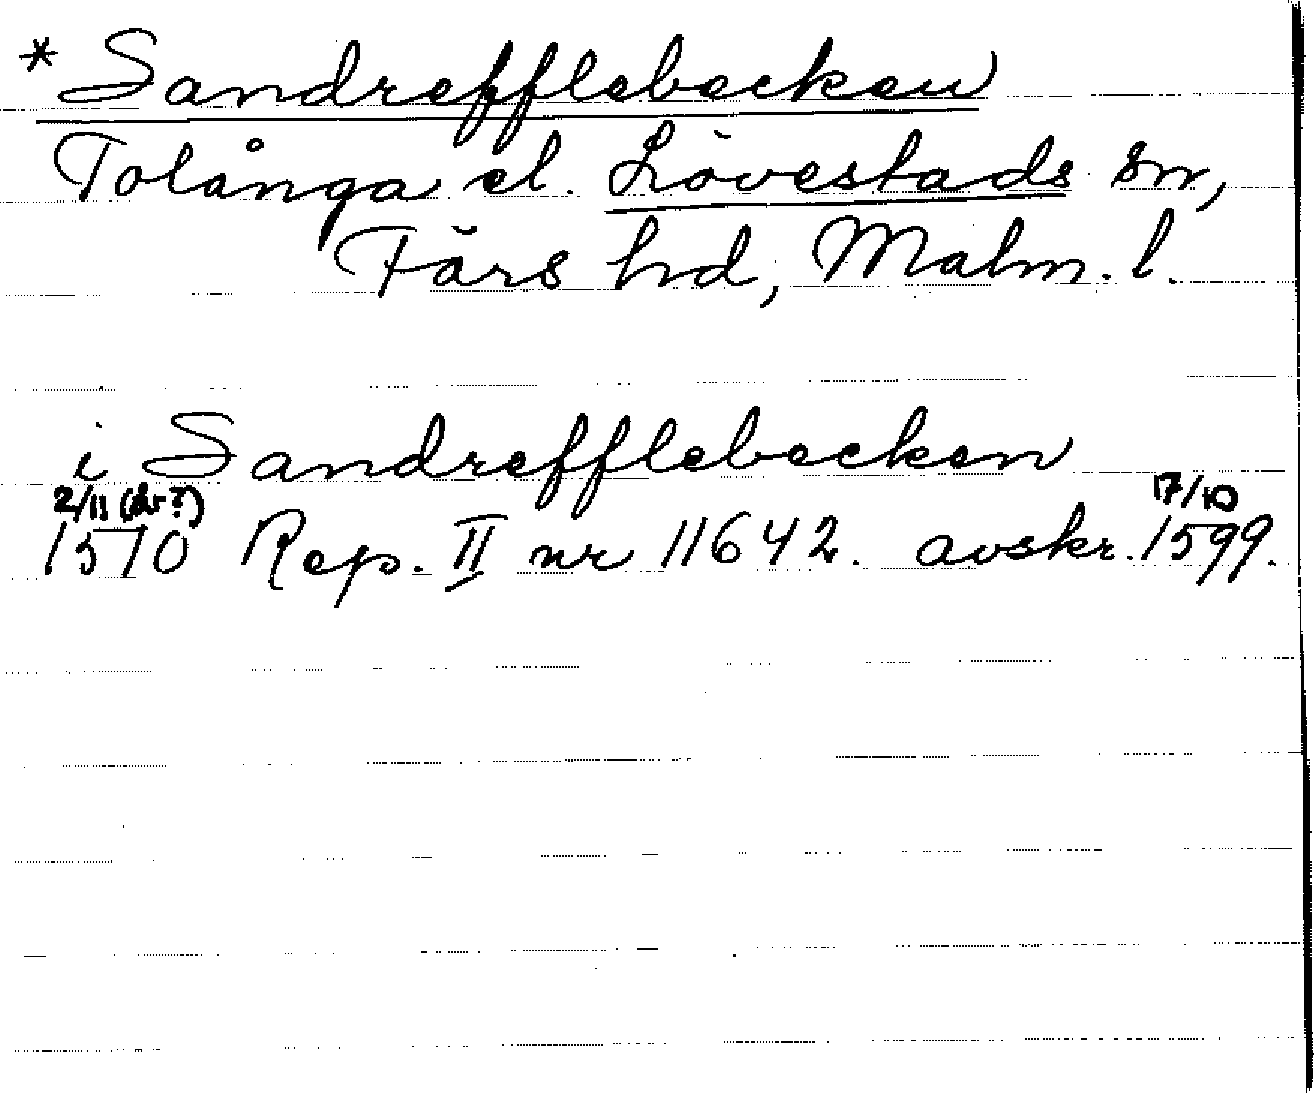 *Sandrefflebecken
Tolånga el. Lövestads sn,
Färs hd, Malm. l.
i Sandrefflebecken
2/11 (år?) 17/10
1510 Rep. II nr 11642. avskr. 1599.